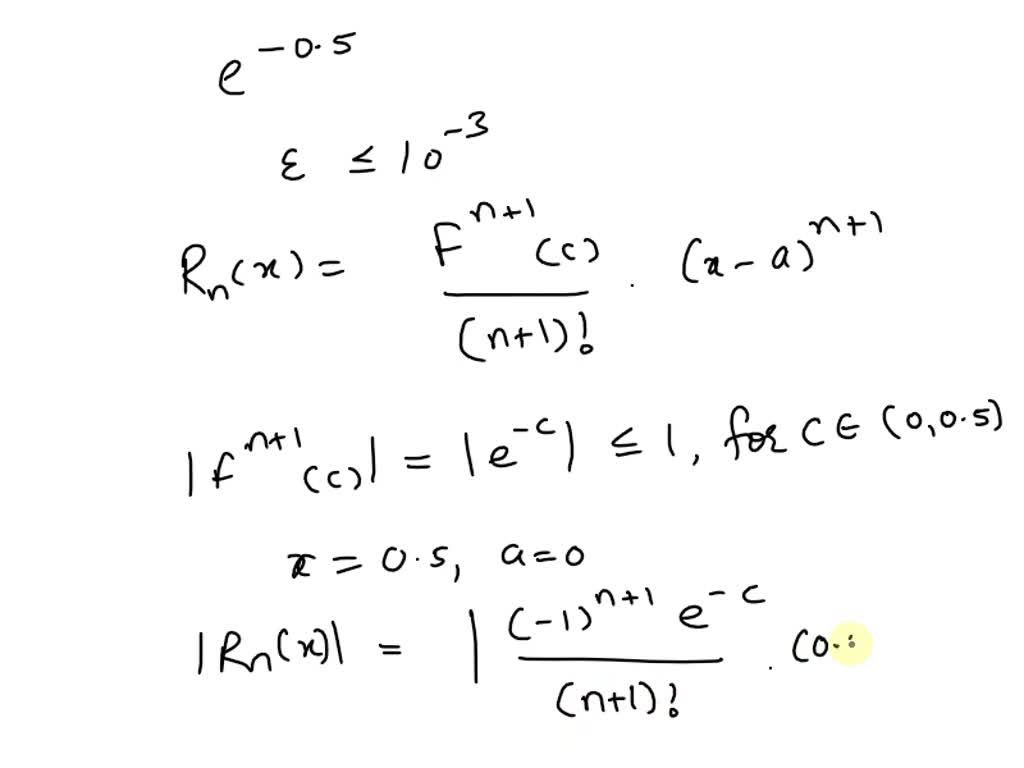 e^{-0.5}
ε ≤ 10^{-3}
R_n(x) = \frac{F^{n+1}(c)}{(n+1)!} . (x-a)^{n+1}
|f^{n+1}(c)| = |e^{-c}| ≤ 1, for C ∈ (0,0.5)
x = 0.5, a=0
|R_n(x)| = |\frac{(-1)^{n+1} e^{-c}}{(n+1)!} . (0.